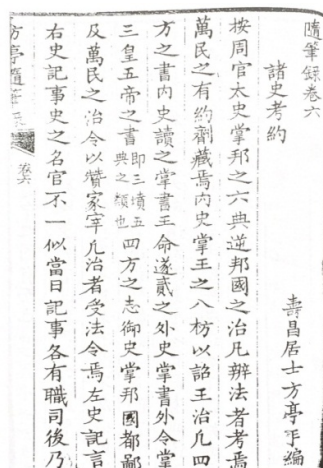 隨筆錄卷六
壽昌居士方亭手編
諸史考約
按周官太史掌邦之六典逆邦國之治凡辦法者考焉
萬民之有約劑藏焉内史掌王之八枋以詔王治凡四
方之書内史讀之掌書王命遂貳之外史掌書外令掌
三皇五帝之書即三墳五典之類也四方之志御史掌邦國都鄙
及萬民之治令以贊冢宰凡治者受法令焉左史記言
右史記事史之名官不一似當日記事各有職司後乃
方亭隨筆 卷六